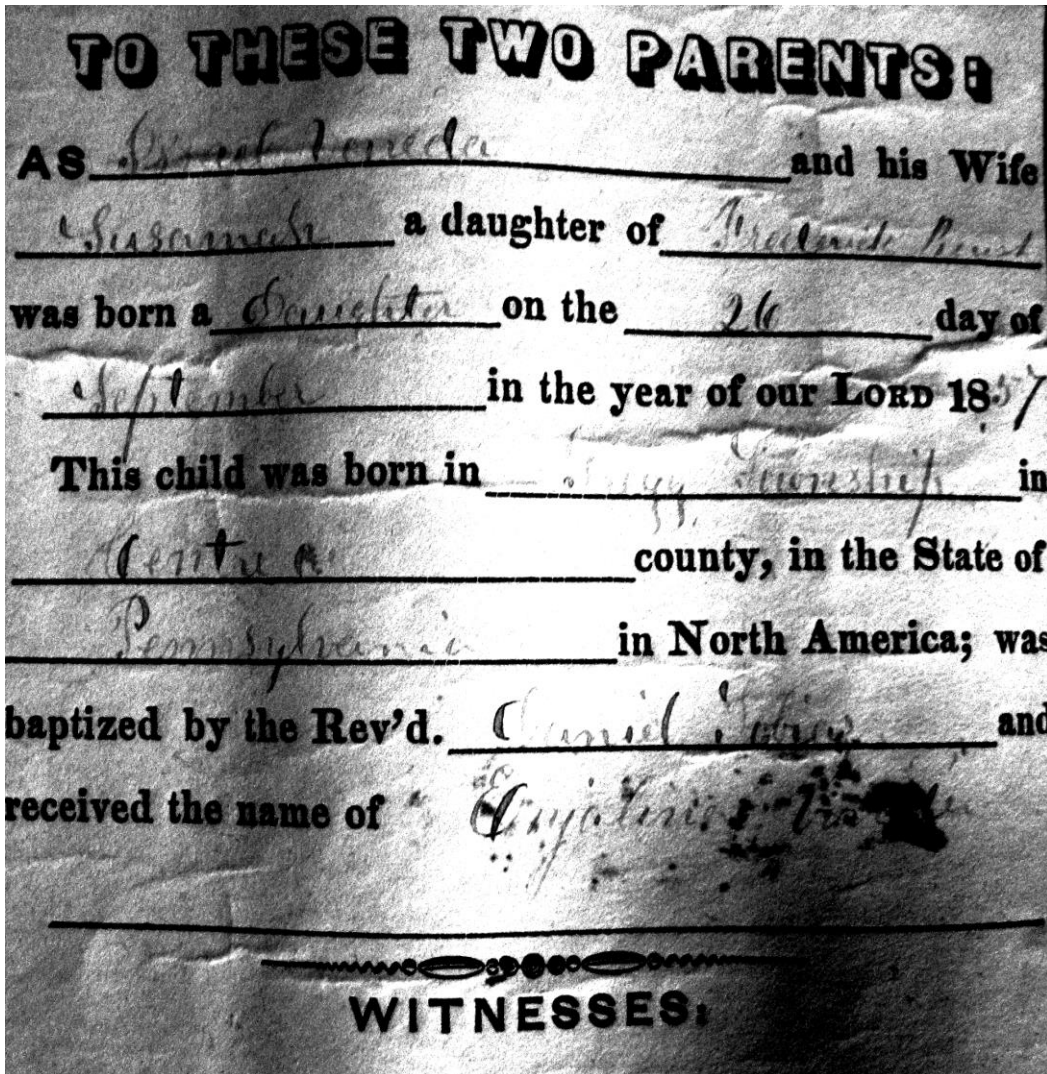 TO THESE TWO PARENTS:
AS and his Wife
Susannah a daughter of Frederick
was born a Daughter on the 26 day of
September in the year of our LORD 1857
This child was born in Gregg Township in
Centre county, in the State of
Pennsylvania in North America; was
baptized by the Rev'd. Daniel and
received the name of
WITNESSES: